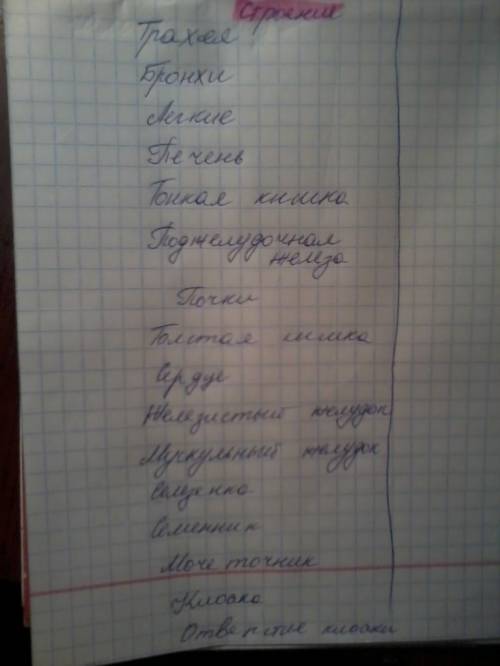 Строение
Трахея
Бронхи
Легкие
Печень
Тонкая кишка
Поджелудочная
железа
Почки
Толстая кишка
Сердце
Железистый желудок
Мускульный желудок
Селезенка
Семенник
Мочеточник
Клоака
Отверстие клоаки